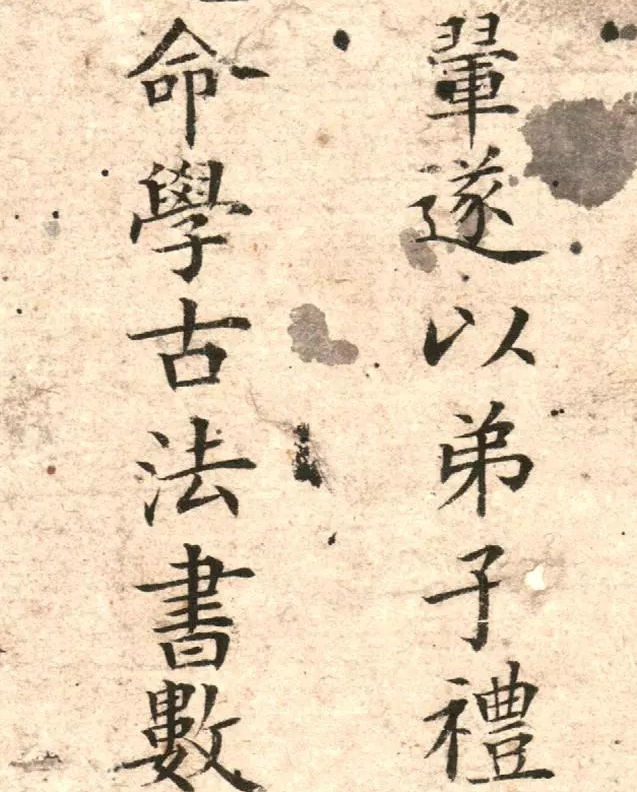 翬遂以弟子禮
命學古法書數